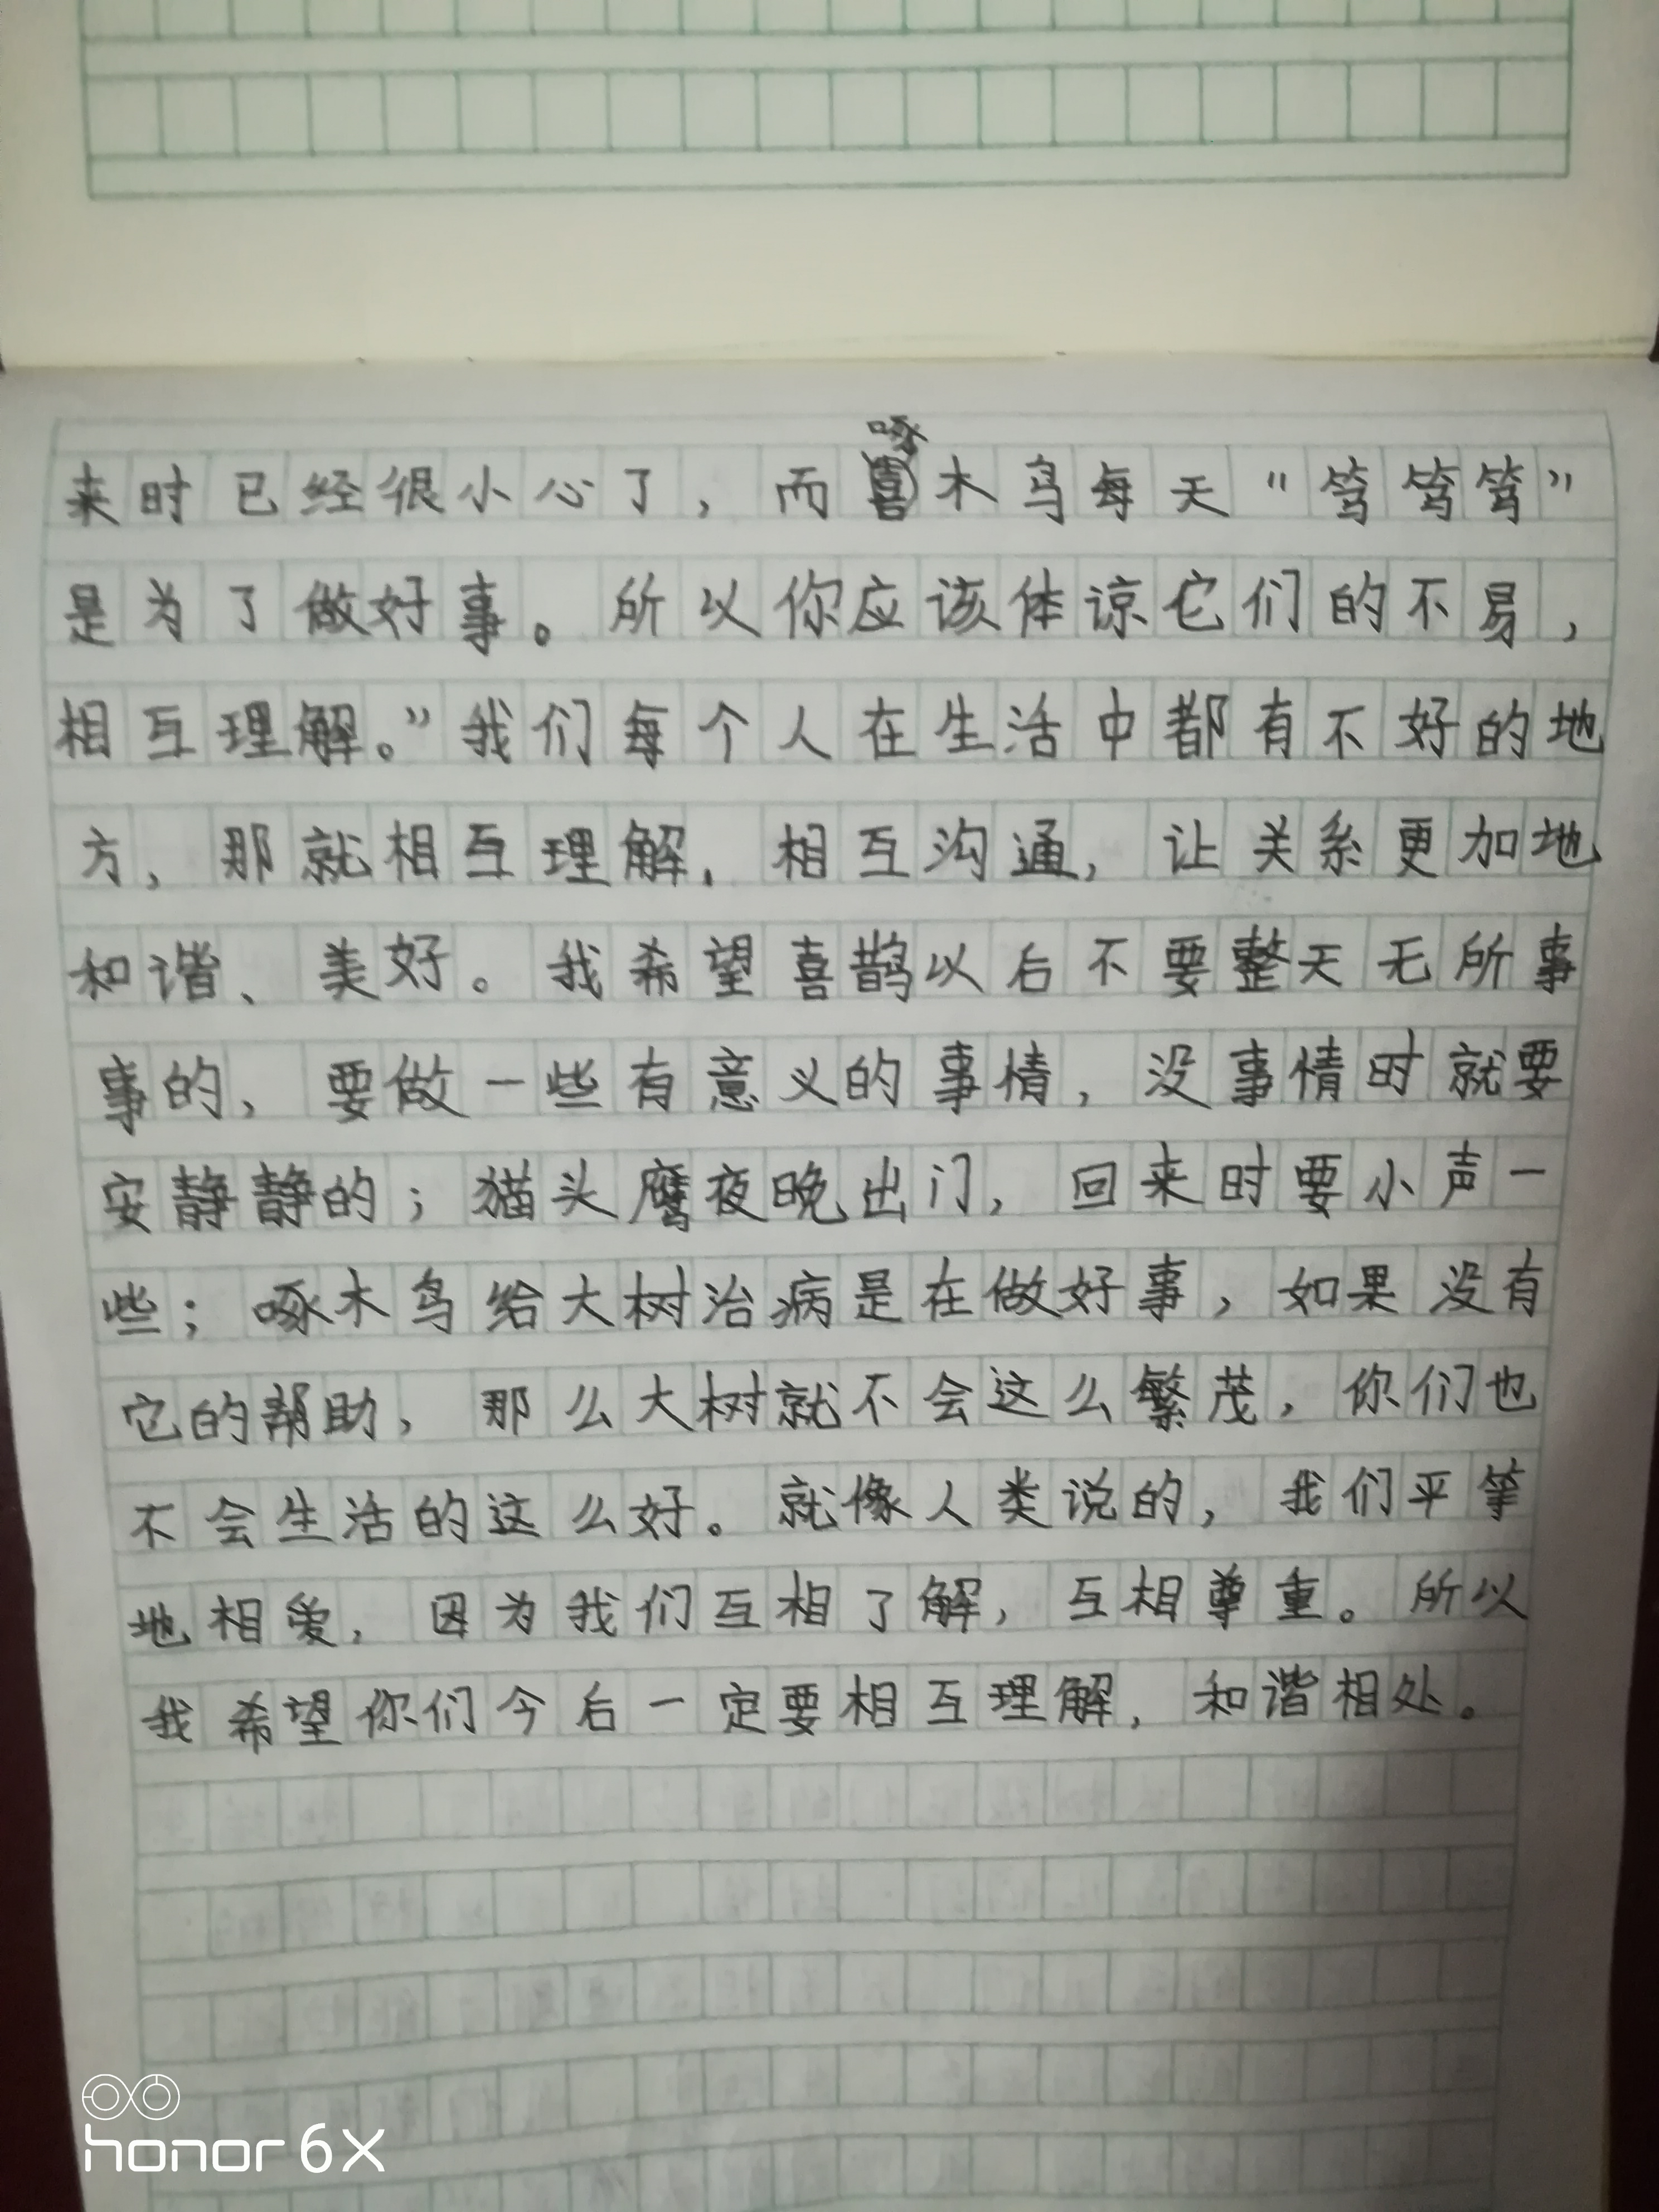 来时已经很小心了，而啄木鸟每天“笃笃笃”
是为了做好事。所以你应该体谅它们的不易，
相互理解。”我们每个人在生活中都有不好的地
方，那就相互理解，相互沟通，让关系更加地
和谐、美好。我希望喜鹊以后不要整天无所事
事的，要做一些有意义的事情，没事情时就要
安静静的；猫头鹰夜晚出门，回来时要小声一
些；啄木鸟给大树治病是在做好事，如果没有
它的帮助，那么大树就不会这么繁茂，你们也
不会生活的这么好。就像人类说的，我们平等
地相爱，因为我们互相了解，互相尊重。所以
我希望你们今后一定要相互理解，和谐相处。
honor 6X